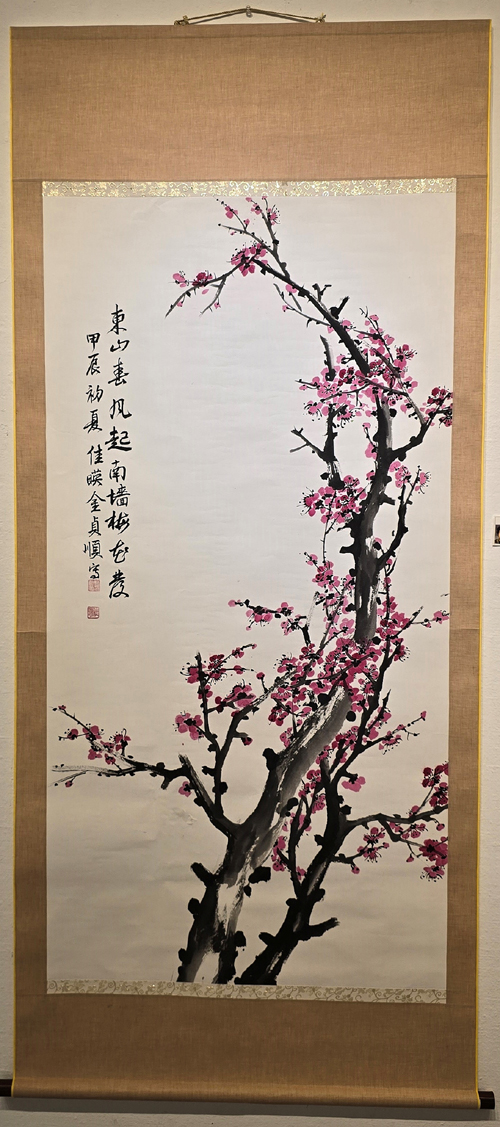 東山春風起南墙梅花發
甲辰初夏佳暎金貞順寫